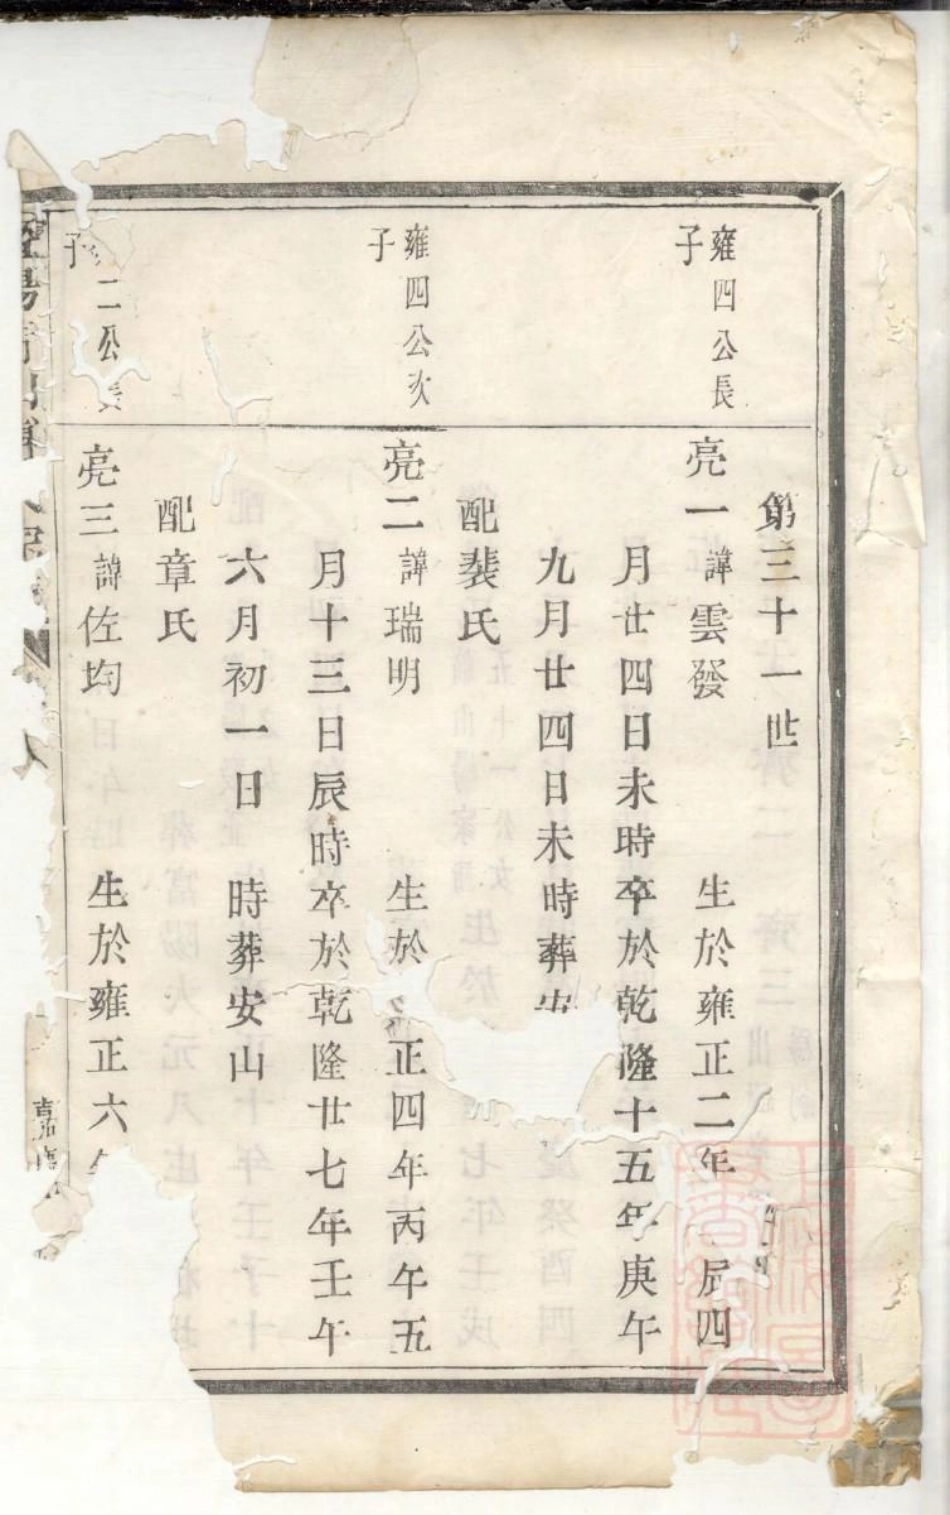 第三十一世
雍四公長
子
亮一 諱雲發 生於雍正二年 辰四
月廿四日未時卒於乾隆十五年庚午
九月廿四日未時葬
配裴氏
雍四公次
子
亮二 諱瑞明 生於 正四年丙午五
月十三日辰時卒於乾隆廿七年壬午
六月初一日 時葬安山
配章氏
二公長
子
亮三 諱佐均 生於雍正六
嘉慶